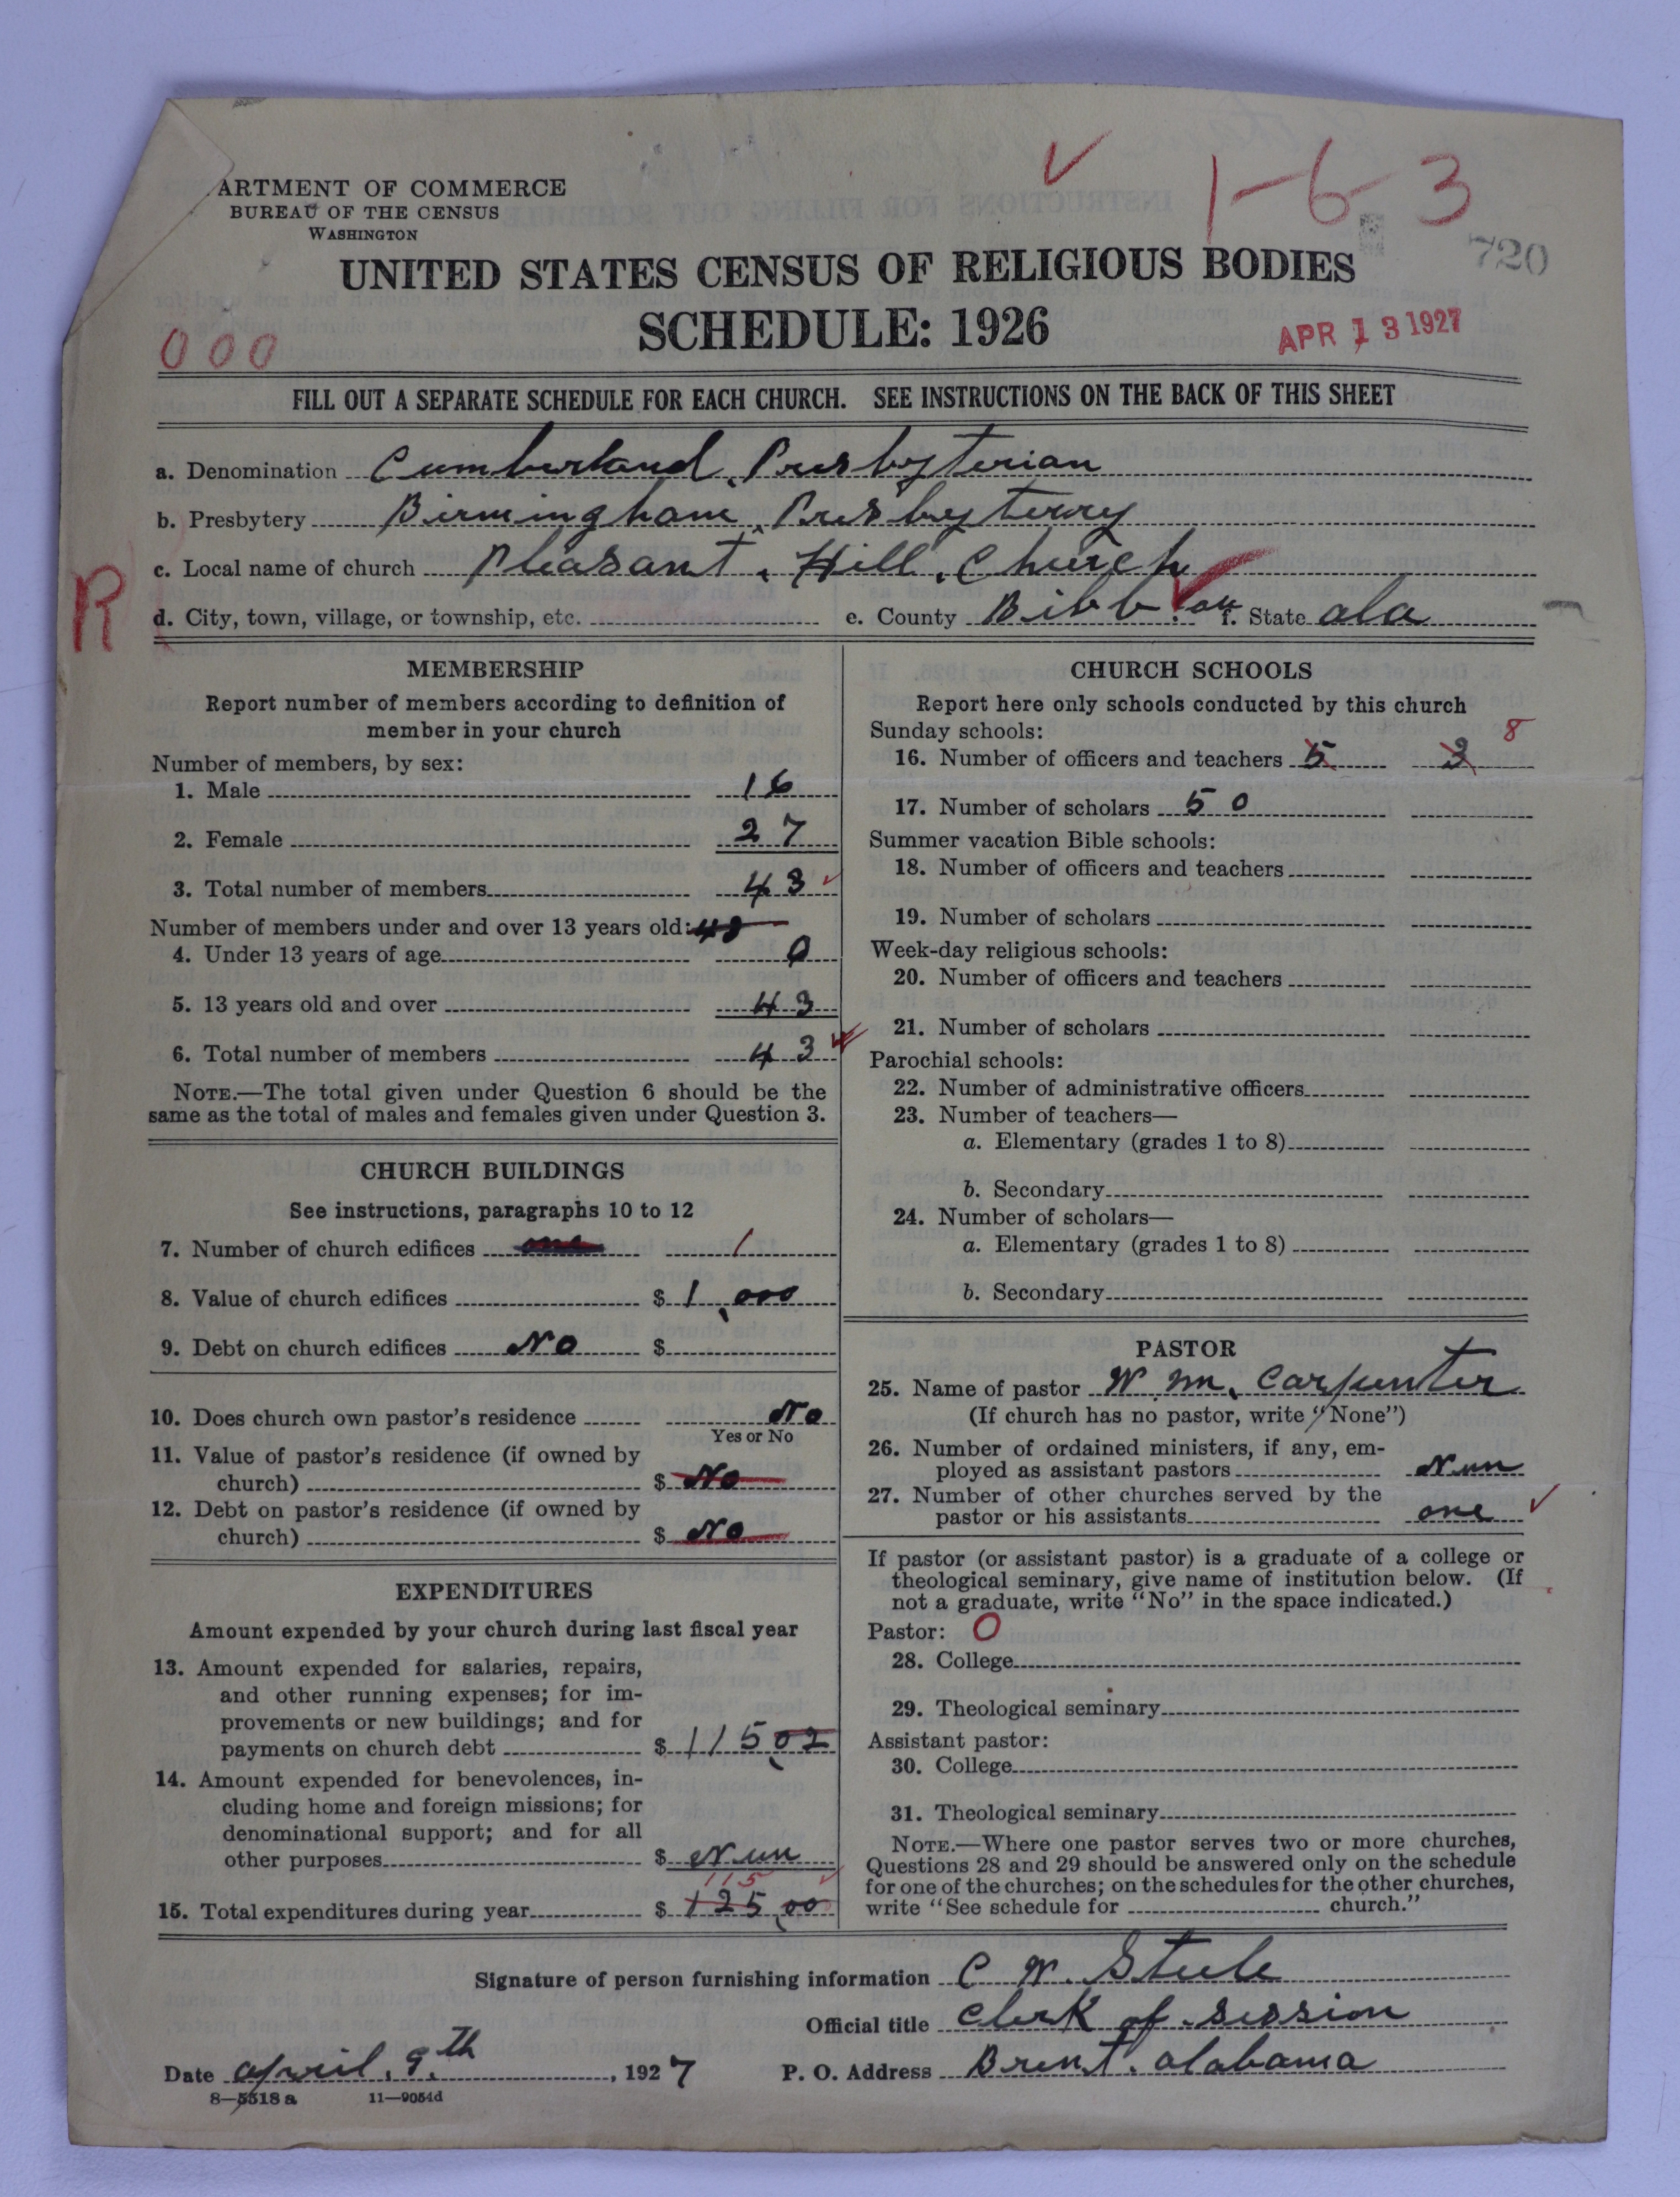 ARTMENT OF COMMERCE
BUREAU OF THE CENSUS
WASHINGTON
1-6-3
720
UNITED STATES CENSUS OF RELIGIOUS BODIES
SCHEDULE: 1926
000
APR 13 1927
FILL OUT A SEPARATE SCHEDULE FOR EACH CHURCH. SEE INSTRUCTIONS ON THE BACK OF THIS SHEET
a. Denomination Cumberland Presbyterian
b. Presbytery Birmingham Presbyterry
c. Local name of church Pleasant Hill Church
R
d. City, town, village, or township, etc.
e. County Bibb f. State ala
MEMBERSHIP
Report number of members according to definition of
member in your church
Number of members, by sex:
1. Male 16
2. Female 27
3. Total number of members 43
Number of members under and over 13 years old: 43
4. Under 13 years of age 0
5. 13 years old and over 43
6. Total number of members 43
NOTE.—The total given under Question 6 should be the
same as the total of males and females given under Question 3.
CHURCH BUILDINGS
See instructions, paragraphs 10 to 12
7. Number of church edifices one 1
8. Value of church edifices $ 1,000
9. Debt on church edifices No $
10. Does church own pastor's residence No
Yes or No
11. Value of pastor's residence (if owned by
church) $ No
12. Debt on pastor's residence (if owned by
church) $ No
EXPENDITURES
Amount expended by your church during last fiscal year
13. Amount expended for salaries, repairs,
and other running expenses; for im-
provements or new buildings; and for
payments on church debt $ 115,02
14. Amount expended for benevolences, in-
cluding home and foreign missions; for
denominational support; and for all
other purposes $ Nun
115
15. Total expenditures during year $ 125,00
CHURCH SCHOOLS
Report here only schools conducted by this church
Sunday schools: 8
16. Number of officers and teachers 5 3
17. Number of scholars 50
Summer vacation Bible schools:
18. Number of officers and teachers
19. Number of scholars
Week-day religious schools:
20. Number of officers and teachers
21. Number of scholars
Parochial schools:
22. Number of administrative officers
23. Number of teachers—
a. Elementary (grades 1 to 8)
b. Secondary
24. Number of scholars—
a. Elementary (grades 1 to 8)
b. Secondary
PASTOR
25. Name of pastor W. M. Carpenter
(If church has no pastor, write "None")
26. Number of ordained ministers, if any, em-
ployed as assistant pastors Nun
27. Number of other churches served by the
pastor or his assistants one
If pastor (or assistant pastor) is a graduate of a college or
theological seminary, give name of institution below. (If
not a graduate, write "No" in the space indicated.)
Pastor: O
28. College
29. Theological seminary
Assistant pastor:
30. College
31. Theological seminary
NOTE.—Where one pastor serves two or more churches,
Questions 28 and 29 should be answered only on the schedule
for one of the churches; on the schedules for the other churches,
write "See schedule for church."
Signature of person furnishing information C W. Steele
Official title Clerk of session
Date april, 9th, 1927 P. O. Address Brent. alabama
8—5518 a 11—9054d